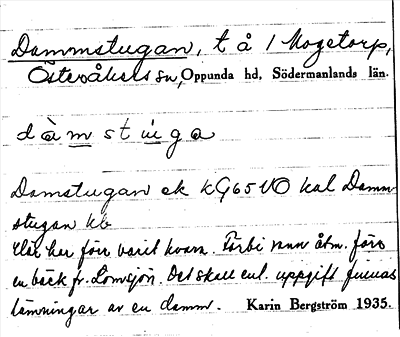 Dammstugan, t å / Mogetorp,
Österåkers sn, Oppunda hd, Södermanlands län.
dàmstùga
Damstugan ek KG65VO kal Damm
stugan kb
Här har förr varit kvarn. Förbi rann åtm. förr
en bäck fr. Lomsjön. Det skall enl. uppgift finnas
lämningar av en damm. Karin Bergström 1935.